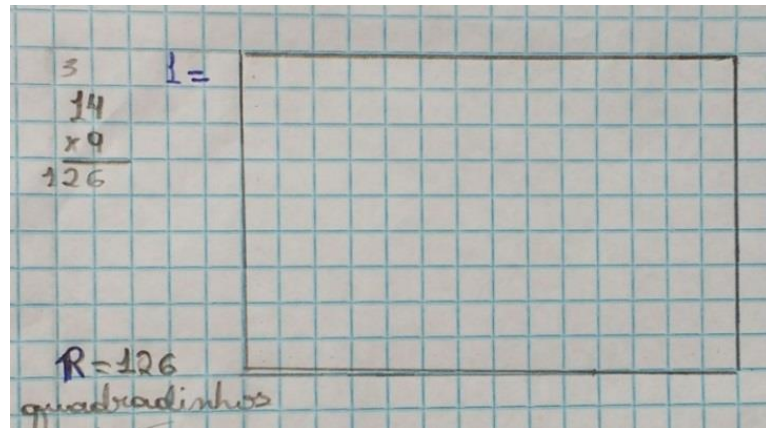 3
1=
14
x9
126
R=126
quadradinhos